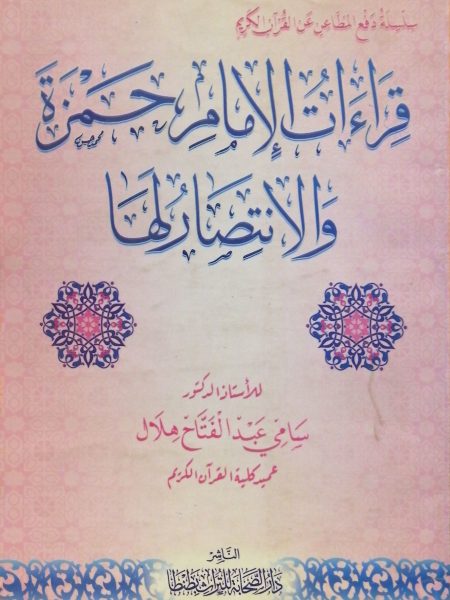 سلسلة دفع المطاعن عن القرآن الكريم
قِرَاءَاتُ الإِمَامِ حَمْزَةَ
وَالانتِصَارُ لَهَا
للأستاذ الدكتور
سَامِي عَبْدُ الْفَتَّاح هِلَال
عميد كلية القرآن الكريم
النَّاشِر
دَارُ الصَّحَابَة لِلتُّرَاث بِطَنْطَا